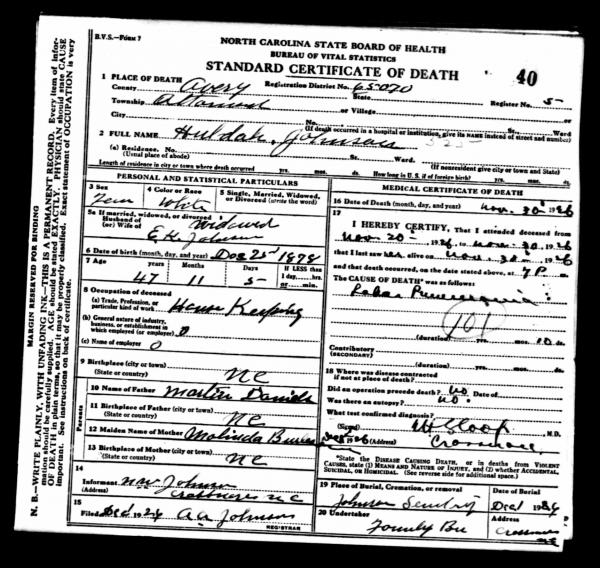 B.V.S.—FORM 7
NORTH CAROLINA STATE BOARD OF HEALTH
BUREAU OF VITAL STATISTICS
STANDARD CERTIFICATE OF DEATH
40
1 PLACE OF DEATH
County Avery Registration District No. 65-070
State
Register No. 5-
Township or Village
City No. St. Ward
(If death occurred in a hospital or institution, give its name instead of street and number)
2 FULL NAME Huldah Johnson
(a) Residence. No. St. Ward.
(Usual place of abode) (If nonresident give city or town and State)
Length of residence in city or town where death occurred yrs. mos. ds. How long in U. S. if of foreign birth? yrs. mos. ds.
PERSONAL AND STATISTICAL PARTICULARS
3 Sex
Fem
4 Color or Race
White
5 Single, Married, Widowed, or Divorced (write the word)
Widowed
5a If married, widowed, or divorced
Husband of
(or) Wife of E. K. Johnson
6 Date of birth (month, day, and year) Dec 25 1878
7 Age Years Months Days If LESS than 1 day, hrs. or min.
47 11 5
8 Occupation of deceased
(a) Trade, Profession, or particular kind of work House Keeping
(b) General nature of industry, business, or establishment in which employed (or employer) 0
(c) Name of employer 0
9 Birthplace (city or town)
(State or country) NC
Parents
10 Name of Father Martin Daniels
11 Birthplace of Father (city or town)
(State or country) NC
12 Maiden Name of Mother Malinda
13 Birthplace of Mother (city or town)
(State or country) NC
14
Informant Johnson
(Address) N C
15
Filed Dec 1 1926 A. A. Johnson
REGISTRAR
MEDICAL CERTIFICATE OF DEATH
16 Date of Death (month, day, and year) Nov. 30 1926
17
I HEREBY CERTIFY, That I attended deceased from
Nov. 20 - 1926, to Nov. 30, 1926
that I last saw her alive on Nov. 30 1926
and that death occurred, on the date stated above, at 7 P. m.
The CAUSE OF DEATH* was as follows:
Lobar Pneumonia
101
(duration) yrs. mos. 10 ds.
Contributory
(SECONDARY)
(duration) yrs. mos. ds.
18 Where was disease contracted
if not at place of death?
Did an operation precede death? No Date of
Was there an autopsy? No.
What test confirmed diagnosis?
(Signed) Sloop M.D.
1926 (Address) Crossnore
*State the DISEASE CAUSING DEATH, or in deaths from VIOLENT CAUSES, state (1) MEANS AND NATURE OF INJURY, and (2) whether ACCIDENTAL, SUICIDAL, or HOMICIDAL. (See reverse side for additional space.)
19 Place of Burial, Cremation, or removal Date of Burial
Johnson Dec 1 1926
20 Undertaker Address
Family Crossnore
NC
MARGIN RESERVED FOR BINDING
N. B.—WRITE PLAINLY, WITH UNFADING INK—THIS IS A PERMANENT RECORD. Every item of information should be carefully supplied. AGE should be stated EXACTLY. PHYSICIAN should state CAUSE OF DEATH in plain terms, so that it may be properly classified. Exact statement of OCCUPATION is very important. See instructions on back of certificate.